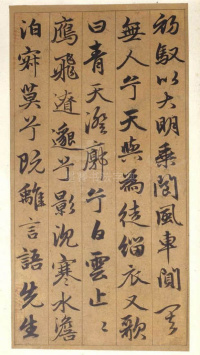 初馭以大明乘閶風車閴其
無人兮天與為徒緇衣又歌
曰青天澄廓兮白雲止〻
鷹飛逍邈兮影沉寒水澹
泊寂莫兮既離言語先生